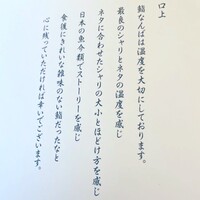 口上
鮨なんばは温度を大切にしております。
最良のシャリとネタの温度を感じ
ネタに合わせたシャリの大小とほどけ方を感じ
日本の魚今額でストーリーを感じ
食後にきれいな雑味のない鮨だったなと
心に残っていただければ幸いでございます。